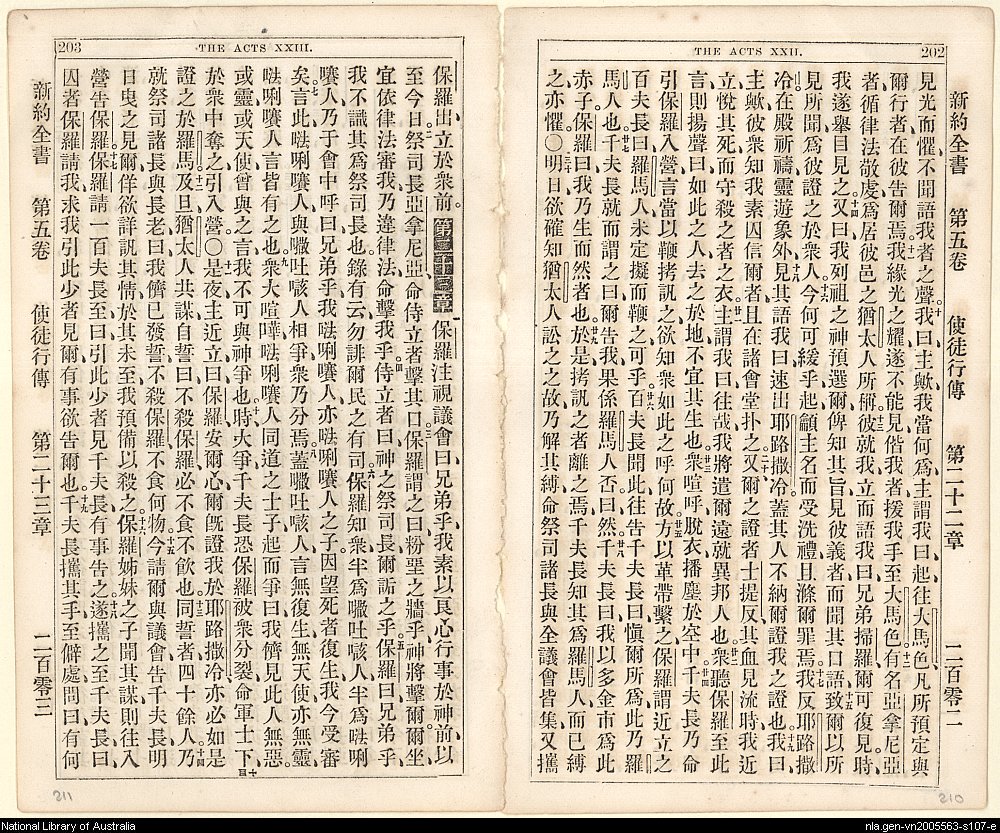 THE ACTS XXII.
202
新約全書 第五卷 使徒行傳 第二十二章 二百零二
見光而懼、不聞語我者之聲。十我曰、主歟、我當何爲、主謂我曰、起往大馬色、凡所預定與
爾行者、在彼告爾焉、十一我緣光之耀、遂不能見、偕我者援我手、至大馬色、十二有名亞拿尼亞
者、循律法敬虔、爲居彼邑之猶太人所稱、十三彼就我立而語我曰、兄弟掃羅、爾可復見、時
我遂舉目見之、十四又曰、我列祖之神預選爾、俾知其旨、見彼義者、而聞其口語、十五致爾以所
見所聞、爲彼證之於衆人、十六今何可緩乎、起籲主名而受洗禮、且滌爾罪焉、十七我反耶路撒
冷、在殿祈禱、靈遊象外、十八見其語我曰、速出耶路撒冷、蓋其人不納爾證我之證也、十九我曰、
主歟、彼衆知我素囚信爾者、且在諸會堂扑之、二十又爾之證者士提反其血見流時、我近
立、悅其死、而守殺之者之衣、廿一主謂我曰、往哉、我將遣爾遠就異邦人也、廿二衆聽保羅至此
言、則揚聲曰、如此之人去之於地、不宜其生也、廿三衆喧呼、脫衣播塵於空中、廿四千夫長乃命
引保羅入營、言當以鞭拷訊之、欲知衆如此之呼何故、廿五方以革帶繫之、保羅謂近立之
百夫長曰、羅馬人未定擬而鞭之可乎、廿六百夫長聞此、往告千夫長曰、愼爾所爲、此乃羅
馬人也、廿七千夫長就而謂之曰、爾告我、果係羅馬人否、曰然、廿八千夫長曰、我以多金市爲此
赤子、保羅曰、我乃生而然者也、廿九於是拷訊之者離之焉、千夫長知其爲羅馬人、而已縛
之、亦懼。○三十明日、欲確知猶太人訟之之故、乃解其縛、命祭司諸長與全議會皆集、又攜
210
203
THE ACTS XXIII.
保羅出立於衆前。第二十三章保羅注視議會曰、兄弟乎、我素以良心行事於神前、以
至今日、二祭司長亞拿尼亞、命侍立者擊其口、三保羅謂之曰、粉堊之牆乎、神將擊爾、爾坐
宜依律法審我、乃違律法命擊我乎、四侍立者曰、神之祭司長爾詬之乎、五保羅曰、兄弟乎、
我不識其爲祭司長也、錄有云、勿誹爾民之有司、六保羅知衆半爲㘔吐咳人、半爲㕸唎
㘔人、乃于會中呼曰、兄弟乎、我㕸唎㘔人、亦㕸唎㘔人之子、因望死者復生、我今受審
矣、七言此、㕸唎㘔人與㘔吐咳人相爭、衆乃分焉、八蓋㘔吐咳人言無復生、無天使、亦無靈、
㕸唎㘔人言皆有之也、九衆大喧嘩、㕸唎㘔人同道之士子、起而爭曰、我儕見此人無惡、
或靈或天使曾與之言、我不可與神爭也、十時大爭、千夫長恐保羅被衆分裂、命軍士下、
於衆中奪之、引入營。○十一是夜、主近立曰、保羅安爾心、爾旣證我於耶路撒冷、亦必如是
證之於羅馬、十二及旦、猶太人共謀自誓曰、不殺保羅、必不食不飲也、十三同誓者四十餘人、十四乃
就祭司諸長與長老曰、我儕已發誓、不殺保羅不食何物、十五今請爾與議會告千夫長、明
日曳之見爾、佯欲詳訊其情、於其未至、我預備以殺之、十六保羅姊妹之子聞其謀、則往入
營告保羅、十七保羅請一百夫長至、曰、引此少者見千夫長、有事告之、十八遂攜之至千夫長曰、
囚者保羅請我、求我引此少者見爾、爾有事欲告爾也、十九千夫長攜其手、至僻處問曰、有何
新約全書 第五卷 使徒行傳 第二十三章 二百零三
211
National Library of Australia
nla.gen-vn2005563-s107-e